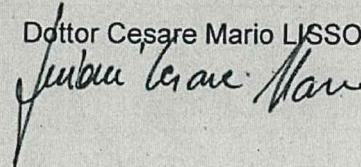 Dottor Cesare Mario LISSO
Cesare Mar